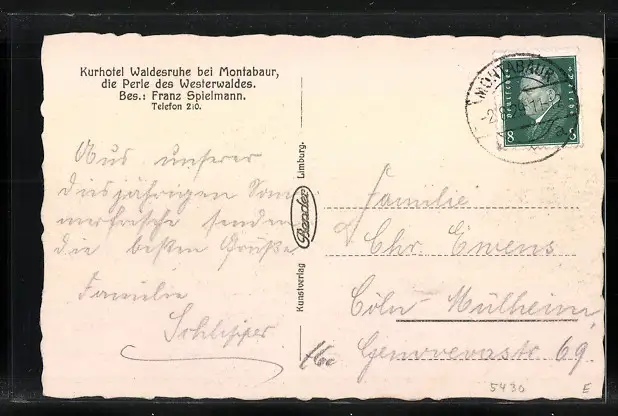 Kurhotel Waldesruhe bei Montabaur,
die Perle des Westerwaldes.
Bes.: Franz Spielmann.
Telefon 210.
Aus unserer
diesjährigen Som
merfrische senden
die besten Grüße
Familie
Schlipper
Kunstverlag Bender Limburg.
MONTABAUR
DEUTSCHES REICH
8 8
Familie
Chr. Ewens
Cöln-Mülheim,
Genovevastr 69
5430
E